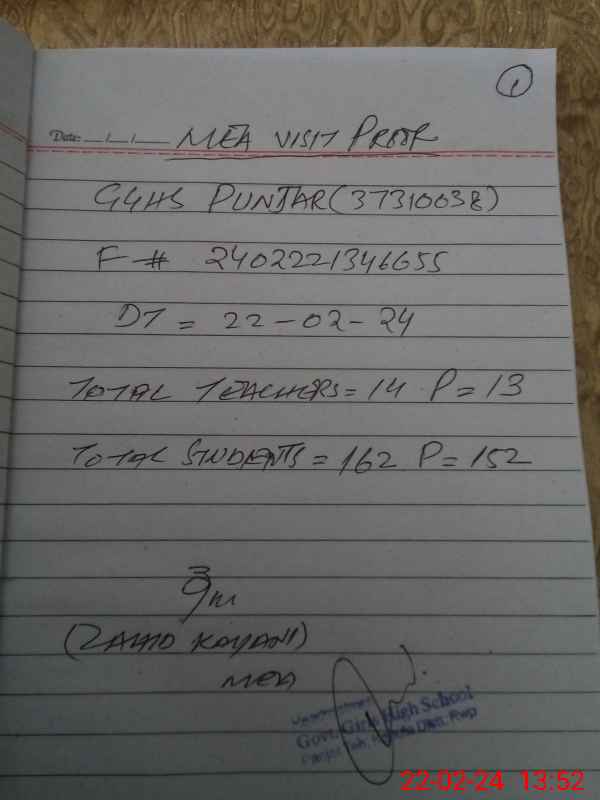 1
Date: __/__/____ MEA VISIT PROOF
GGHS PUNJAR (37310038)
F # 2402221346655
DT = 22-02-24
TOTAL TEACHERS = 14 P = 13
TOTAL STUDENTS = 162 P = 152
(ZAHID KAYANI)
MEA
Govt. Girls High School
Panjar Teh. Distt. Rwp
22-02-24 13:52